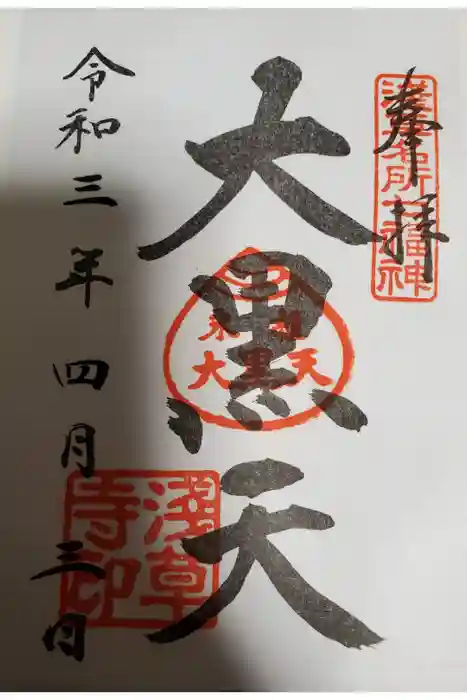 奉拝
浅草名所七福神
大黒天
大黒天
浅草寺印
令和三年四月三日